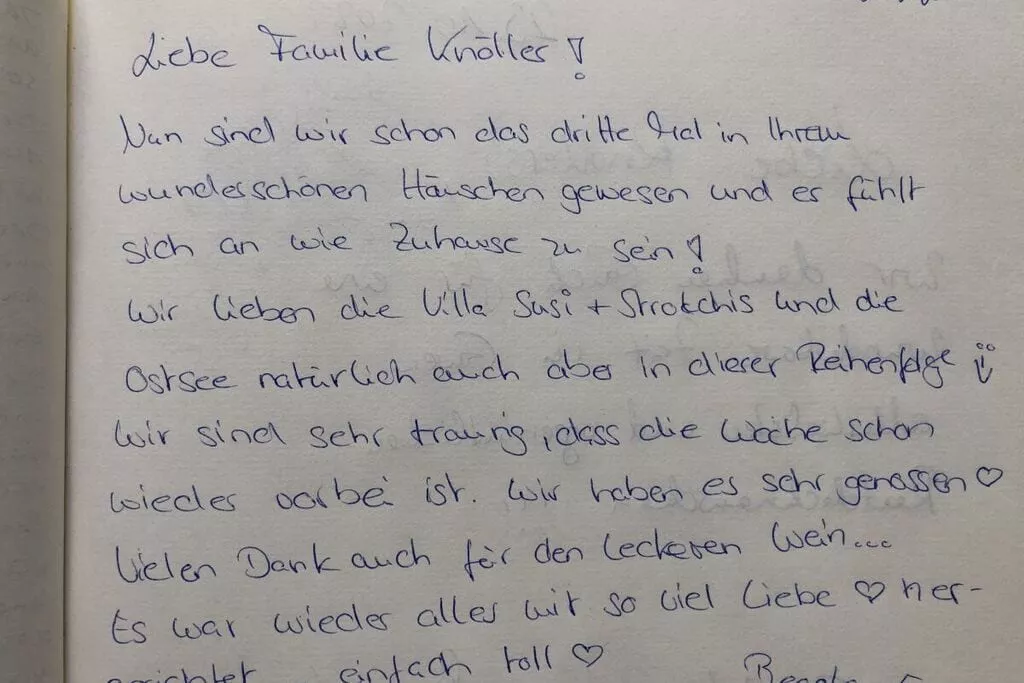 Liebe Familie Knöller!
Nun sind wir schon das dritte Mal in Ihrem
wunderschönen Häuschen gewesen und es fühlt
sich an wie Zuhause zu sein!
Wir lieben die Villa Susi + Strolchis und die
Ostsee natürlich auch aber in dieser Reihenfolge
Wir sind sehr traurig, dass die Woche schon
wieder vorbei ist. Wir haben es sehr genossen ♡
Vielen Dank auch für den leckeren Wein...
Es war wieder alles mit so viel Liebe ♡ her-
gerichtet einfach toll ♡